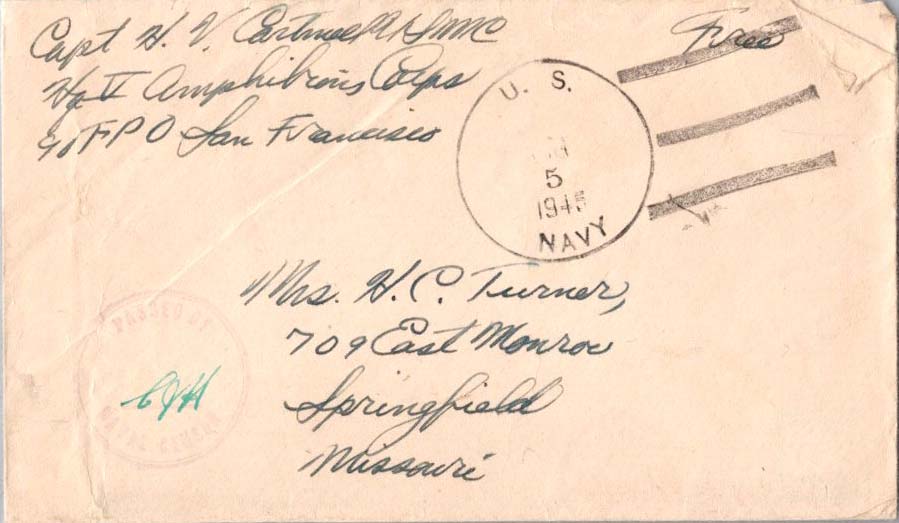 Capt H. V. Cartwell USMC
Hq V Amphibious Corps
c/o FPO San Francisco
Free
U. S.
5
1945
NAVY
Mrs. H. C. Turner,
709 East Monroe
Springfield
Missouri
PASSED BY
NAVAL CENSOR